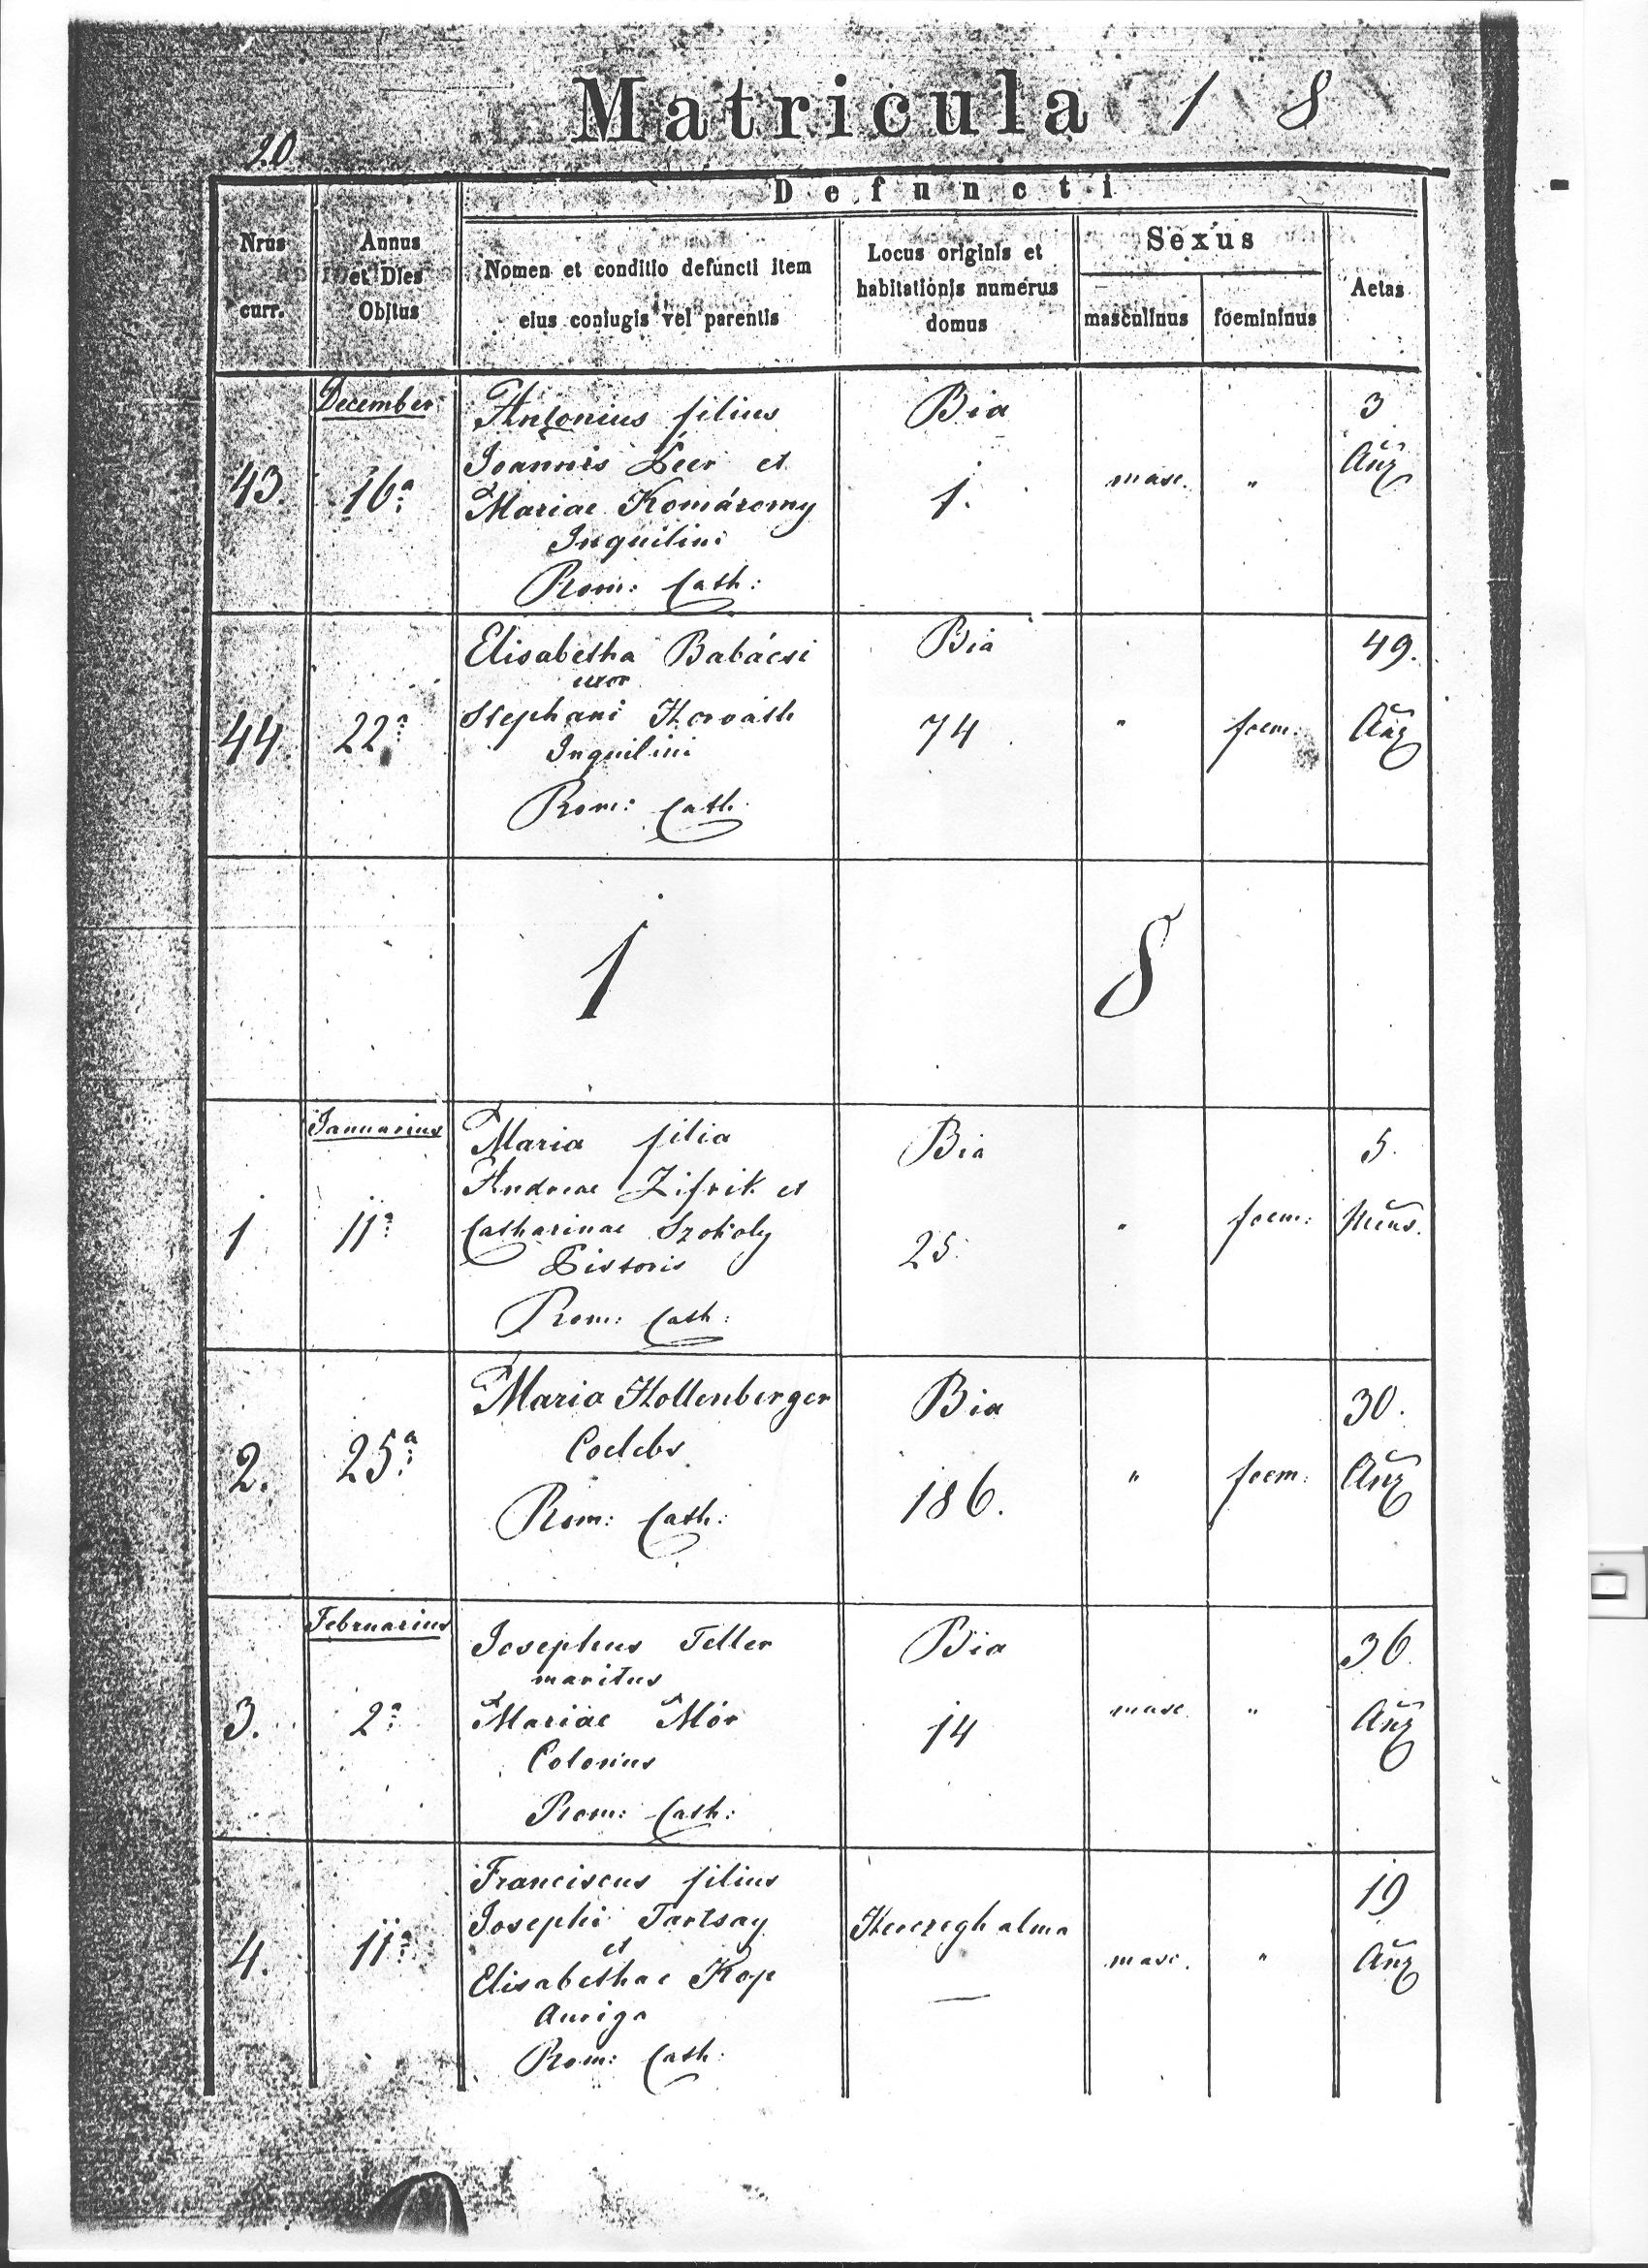 Matricula 1 8
20
Defuncti
Nrus
curr.
Annus
et Dies
Obitus
Nomen et conditio defuncti item
eius coniugis vel parentis
Locus originis et
habitationis numerus
domus
Sexus
masculinus
foemininus
Aetas
December
43.
16a
Antonius filius
Joannis Péer et
Mariae Komáromy
Inquilini
Rom: Cath:
Bia
1.
masc.
"
3
Añ
44
22a
Elisabetha Babácsi
uxor
Stephani Horváth
Inquilini
Rom: Cath:
Bia
74
"
foem:
49.
Añ
1 8
Januarius
1
11a
Maria filia
Andreae Zifrik et
Catharinae Szokoly
Pistoris
Rom: Cath:
Bia
25.
"
foem:
5.
Mens.
2.
25a
Maria Hollenberger
Coelebs
Rom: Cath:
Bia
186.
"
foem:
30.
Añ
Februarius
3.
2a
Josephus Teller
maritus
Mariae Mór
Colonus
Rom: Cath:
Bia
14
masc.
"
36
Añ
4.
11a
Franciscus filius
Josephi Tartsay
et
Elisabethae Kop
Auriga
Rom: Cath:
Herczeghalma
—
masc.
"
19
Añ